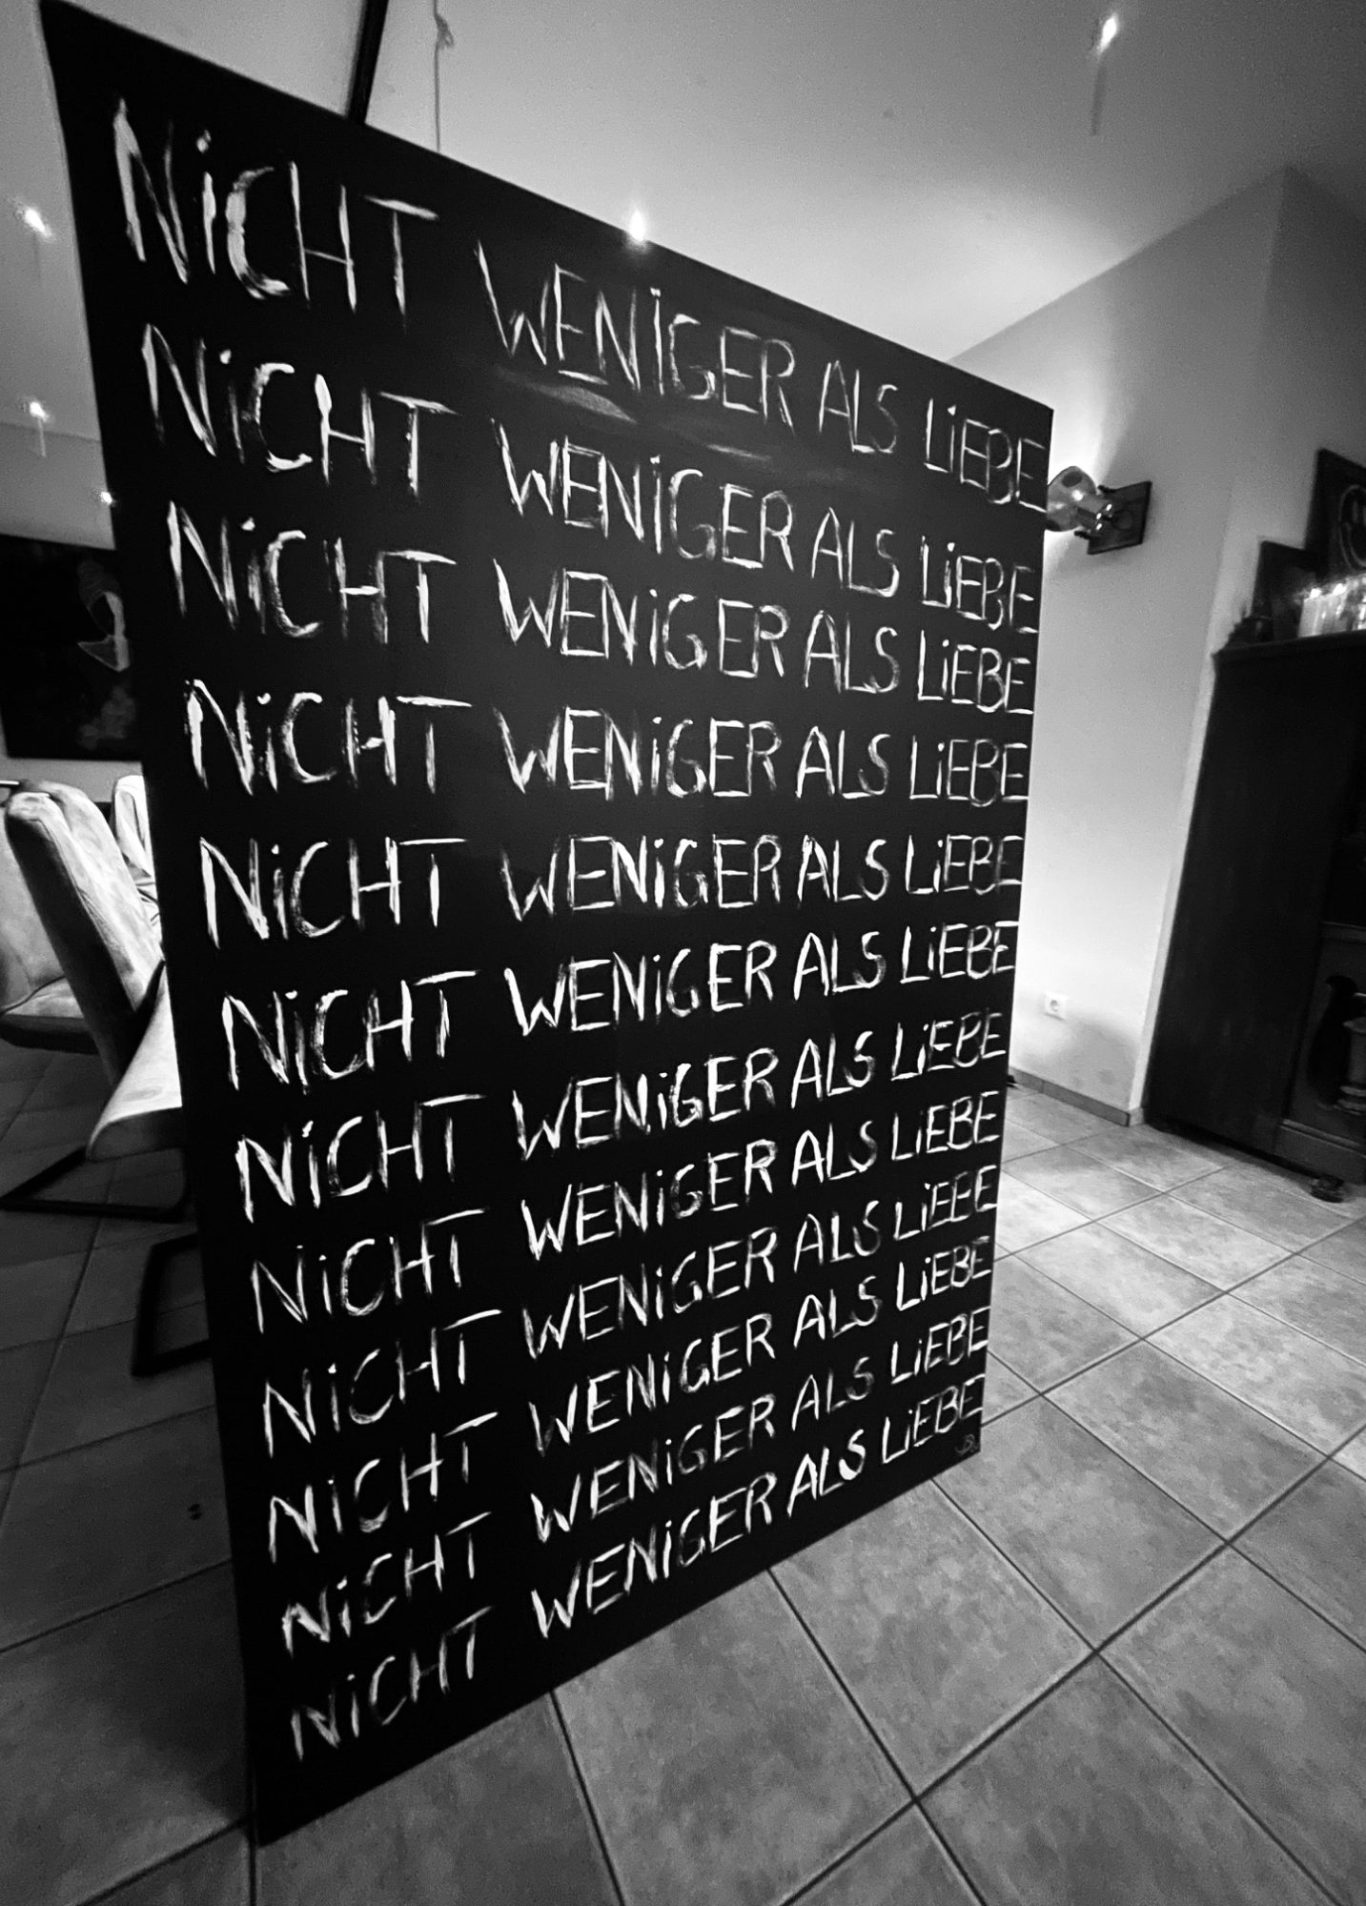 NiCHT WENiGER ALS LiEBE
NiCHT WENiGER ALS LiEBE
NiCHT WENiGER ALS LiEBE
NiCHT WENiGER ALS LiEBE
NiCHT WENiGER ALS LiEBE
NiCHT WENiGER ALS LiEBE
NiCHT WENiGER ALS LiEBE
NiCHT WENiGER ALS LiEBE
NiCHT WENiGER ALS LiEBE
NiCHT WENiGER ALS LiEBE
NiCHT WENiGER ALS LiEBE
NiCHT WENiGER ALS LiEBE